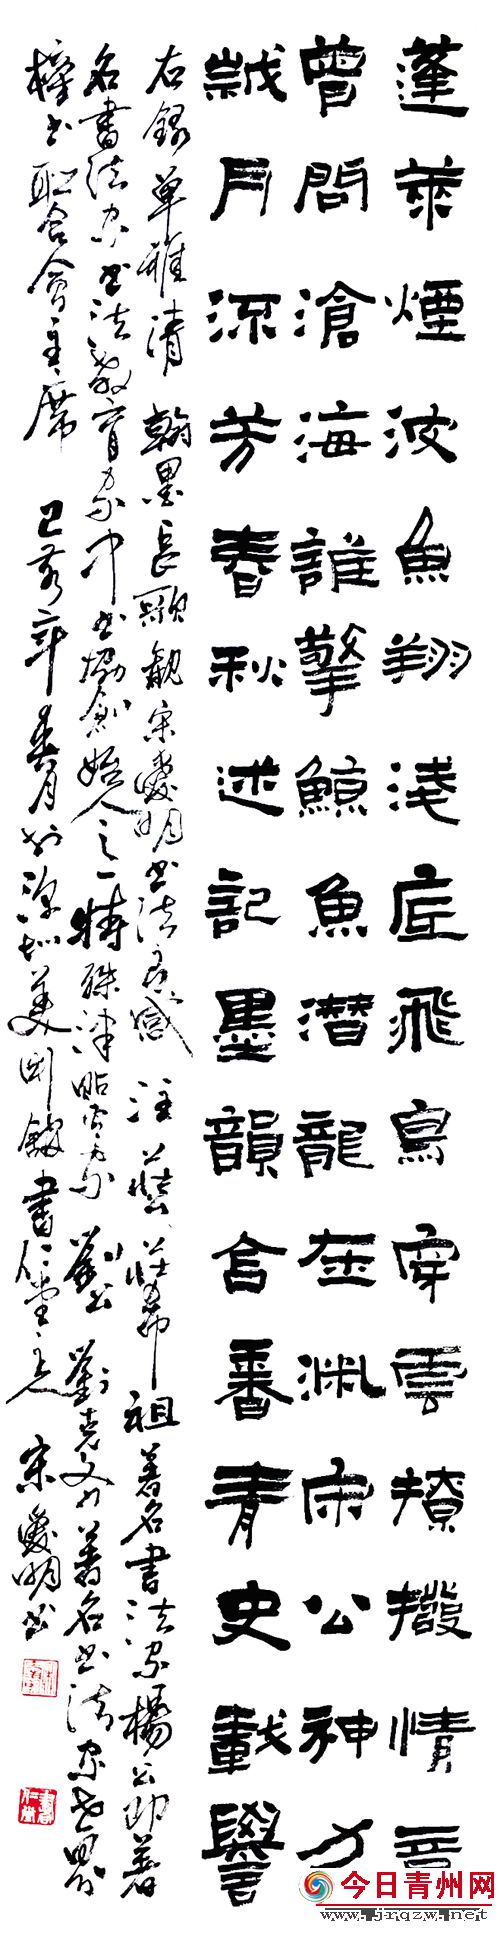 蓬萊煙波魚翔淺底飛鳥穿雲撩撥情
曾問滄海誰擎鯨魚潛龍在淵宋公神力
歲月流芳春秋述記墨韻含香青史載譽
右錄單雅清 翰墨長歌觀宋愛明書法有感 注 莊公莊希祖著名書法家楊公即著
名書法家書法教育家中書協創始人之一特殊津貼專家 劉公 劉克文著名書法家
聯合會主席 己亥年 月於深圳美 館書仁堂主人 宋愛明书
今日青州网
www.jrqzw.net